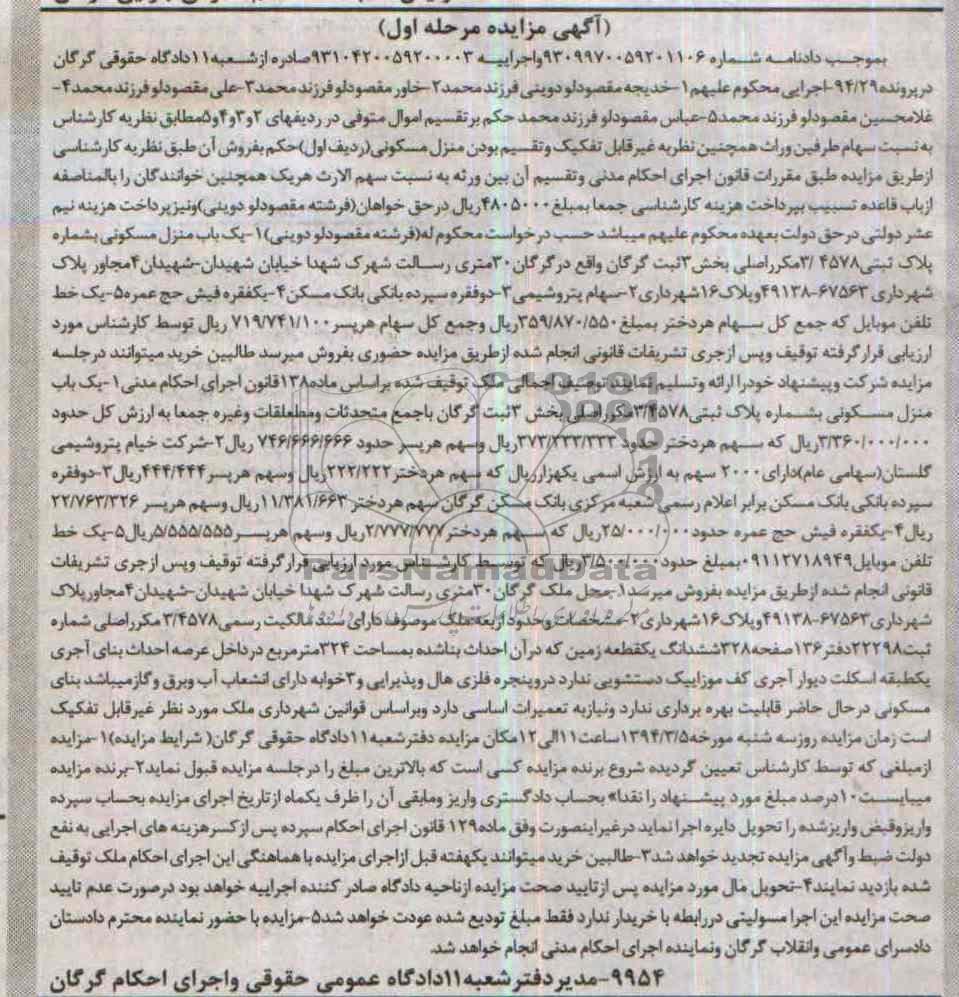 (آگهی مزایده مرحله اول)
بموجب دادنامه شماره ۹۳۰۹۹۷۰۰۵۹۲۰۱۱۰۶واجراییه ۹۳۱۰۴۲۰۰۵۹۲۰۰۰۰۳صادره ازشعبه۱۱دادگاه حقوقی گرگان
درپرونده۹۴/۲۹-اجرایی محکوم علیهم۱-خدیجه مقصودلو دوینی فرزند محمد۲-خاور مقصودلو فرزند محمد۳-علی مقصودلو فرزند محمد۴-
غلامحسین مقصودلو فرزند محمد۵-عباس مقصودلو فرزند محمد حکم برتقسیم اموال متوفی در ردیفهای ۲و۳و۴و۵مطابق نظریه کارشناس
به نسبت سهام طرفین وراث همچنین نظربه غیرقابل تفکیک وتقسیم بودن منزل مسکونی(ردیف اول)حکم بفروش آن طبق نظریه کارشناسی
ازطریق مزایده طبق مقررات قانون اجرای احکام مدنی وتقسیم آن بین ورثه به نسبت سهم الارث هریک همچنین خوانندگان را بالمناصفه
ازباب قاعده تسبیب بپرداخت هزینه کارشناسی جمعا بمبلغ۴۸۰۵۰۰۰ریال درحق خواهان(فرشته مقصودلو دوینی)ونیزپرداخت هزینه نیم
عشر دولتی درحق دولت بعهده محکوم علیهم میباشد حسب درخواست محکوم له(فرشته مقصودلو دوینی)۱-یک باب منزل مسکونی بشماره
پلاک ثبتی۴۵۷۸ /۳مکرراصلی بخش۳ثبت گرگان واقع درگرگان۳۰متری رسالت شهرک شهدا خیابان شهیدان-شهیدان۴مجاور پلاک
شهرداری ۶۷۵۶۳-۴۹۱۳۸وپلاک۱۶شهرداری۲-سهام پتروشیمی۳-دوفقره سپرده بانکی بانک مسکن۴-یکفقره فیش حج عمره۵-یک خط
تلفن موبایل که جمع کل سهام هردختر بمبلغ۳۵۹/۸۷۰/۵۵۰ریال وجمع کل سهام هرپسر۷۱۹/۷۴۱/۱۰۰ ریال توسط کارشناس مورد
ارزیابی قرارگرفته توقیف وپس ازجری تشریفات قانونی انجام شده ازطریق مزایده حضوری بفروش میرسد طالبین خرید میتوانند درجلسه
مزایده شرکت وپیشنهاد خودرا ارائه وتسلیم نمایند توصیف اجمالی ملک توقیف شده براساس ماده۱۳۸قانون اجرای احکام مدنی۱-یک باب
منزل مسکونی بشماره پلاک ثبتی۳/۴۵۷۸مکرراصلی بخش ۳ثبت گرگان باجمع متحدثات ومطعلقات وغیره جمعا به ارزش کل حدود
۳/۳۶۰/۰۰۰/۰۰۰ریال که سهم هردختر حدود ۳۷۳/۳۳۳/۳۳۳ریال وسهم هرپسر حدود ۷۴۶/۶۶۶/۶۶۶ ریال۲-شرکت خیام پتروشیمی
گلستان(سهامی عام)دارای۲۰۰۰ سهم به ارزش اسمی یکهزارریال که سهم هردختر۲۲۲/۲۲۲ریال وسهم هرپسر۴۴۴/۴۴۴ریال۳-دوفقره
سپرده بانکی بانک مسکن برابر اعلام رسمی شعبه مرکزی بانک مسکن گرگان سهم هردختر۱۱/۳۸۱/۶۶۳ریال وسهم هرپسر ۲۲/۷۶۳/۳۲۶
ریال۴-یکفقره فیش حج عمره حدود۲۵/۰۰۰/۰۰۰ریال که سهم هردختر۲/۷۷۷/۷۷۷ریال وسهم هرپسر۵/۵۵۵/۵۵۵ریال۵-یک خط
تلفن موبایل۰۹۱۱۲۷۱۸۹۴۹بمبلغ حدود۳/۵۰۰/۰۰۰ریال که توسط کارشناس مورد ارزیابی قرارگرفته توقیف وپس ازجری تشریفات
قانونی انجام شده ازطریق مزایده بفروش میرسد۱-محل ملک گرگان۳۰متری رسالت شهرک شهدا خیابان شهیدان-شهیدان۴مجاورپلاک
شهرداری۶۷۵۶۳-۴۹۱۳۸وپلاک۱۶شهرداری۲-مشخصات وحدود اربعه ملک موصوف دارای سند مالکیت رسمی۳/۴۵۷۸مکرراصلی شماره
ثبت۲۲۲۹۸دفتر۱۳۶صفحه۳۲۸ششدانگ یکقطعه زمین که درآن احداث بناشده بمساحت ۳۲۴مترمربع درداخل عرصه احداث بنای آجری
یکطبقه اسکلت دیوار آجری کف موزاییک دستشویی ندارد دروپنجره فلزی هال وپذیرایی و۳خوابه دارای انشعاب آب وبرق وگازمیباشد بنای
مسکونی درحال حاضر قابلیت بهره برداری ندارد ونیازبه تعمیرات اساسی دارد وبراساس قوانین شهرداری ملک مورد نظر غیرقابل تفکیک
است زمان مزایده روزسه شنبه مورخه۱۳۹۴/۳/۵ساعت۱۱الی۱۲مکان مزایده دفترشعبه۱۱دادگاه حقوقی گرگان( شرایط مزایده)۱-مزایده
ازمبلغی که توسط کارشناس تعیین گردیده شروع برنده مزایده کسی است که بالاترین مبلغ را درجلسه مزایده قبول نماید۲-برنده مزایده
میبایست۱۰درصد مبلغ مورد پیشنهاد را نقدا» بحساب دادگستری واریز ومابقی آن را ظرف یکماه ازتاریخ اجرای مزایده بحساب سپرده
واریزوقبض واریزشده را تحویل دایره اجرا نماید درغیراینصورت وفق ماده۱۲۹ قانون اجرای احکام سپرده پس ازکسرهزینه های اجرایی به نفع
دولت ضبط وآگهی مزایده تجدید خواهد شد۳-طالبین خرید میتوانند یکهفته قبل ازاجرای مزایده با هماهنگی این اجرای احکام ملک توقیف
شده بازدید نمایند۴-تحویل مال مورد مزایده پس ازتایید صحت مزایده ازناحیه دادگاه صادر کننده اجراییه خواهد بود درصورت عدم تایید
صحت مزایده این اجرا مسولیتی دررابطه با خریدار ندارد فقط مبلغ تودیع شده عودت خواهد شد۵-مزایده با حضور نماینده محترم دادستان
دادسرای عمومی وانقلاب گرگان ونماینده اجرای احکام مدنی انجام خواهد شد.
۹۹۵۴-مدیردفترشعبه۱۱دادگاه عمومی حقوقی واجرای احکام گرگان
ParsNamadData